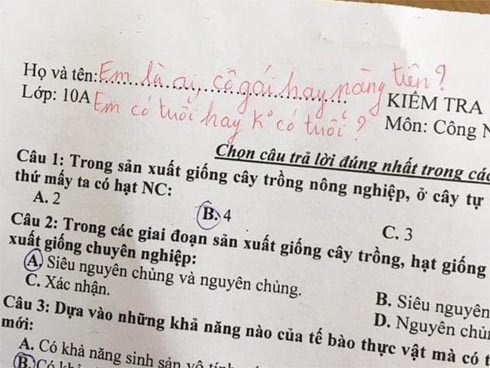 Họ và tên: Em là ai, cô gái hay nàng tiên?
KIỂM TRA
Lớp: 10A Em có tuổi hay K° có tuổi?
Môn: Công N
Chọn câu trả lời đúng nhất trong các
Câu 1: Trong sản xuất giống cây trồng nông nghiệp, ở cây tự
thứ mấy ta có hạt NC:
A. 2 B. 4 C. 3
Câu 2: Trong các giai đoạn sản xuất giống cây trồng, hạt giống
xuất giống chuyên nghiệp:
A. Siêu nguyên chủng và nguyên chủng. B. Siêu nguyên
C. Xác nhận. D. Nguyên chủn
Câu 3: Dựa vào những khả năng nào của tế bào thực vật mà có t
mới:
A. Có khả năng sinh sản vô tính
B. Có khả